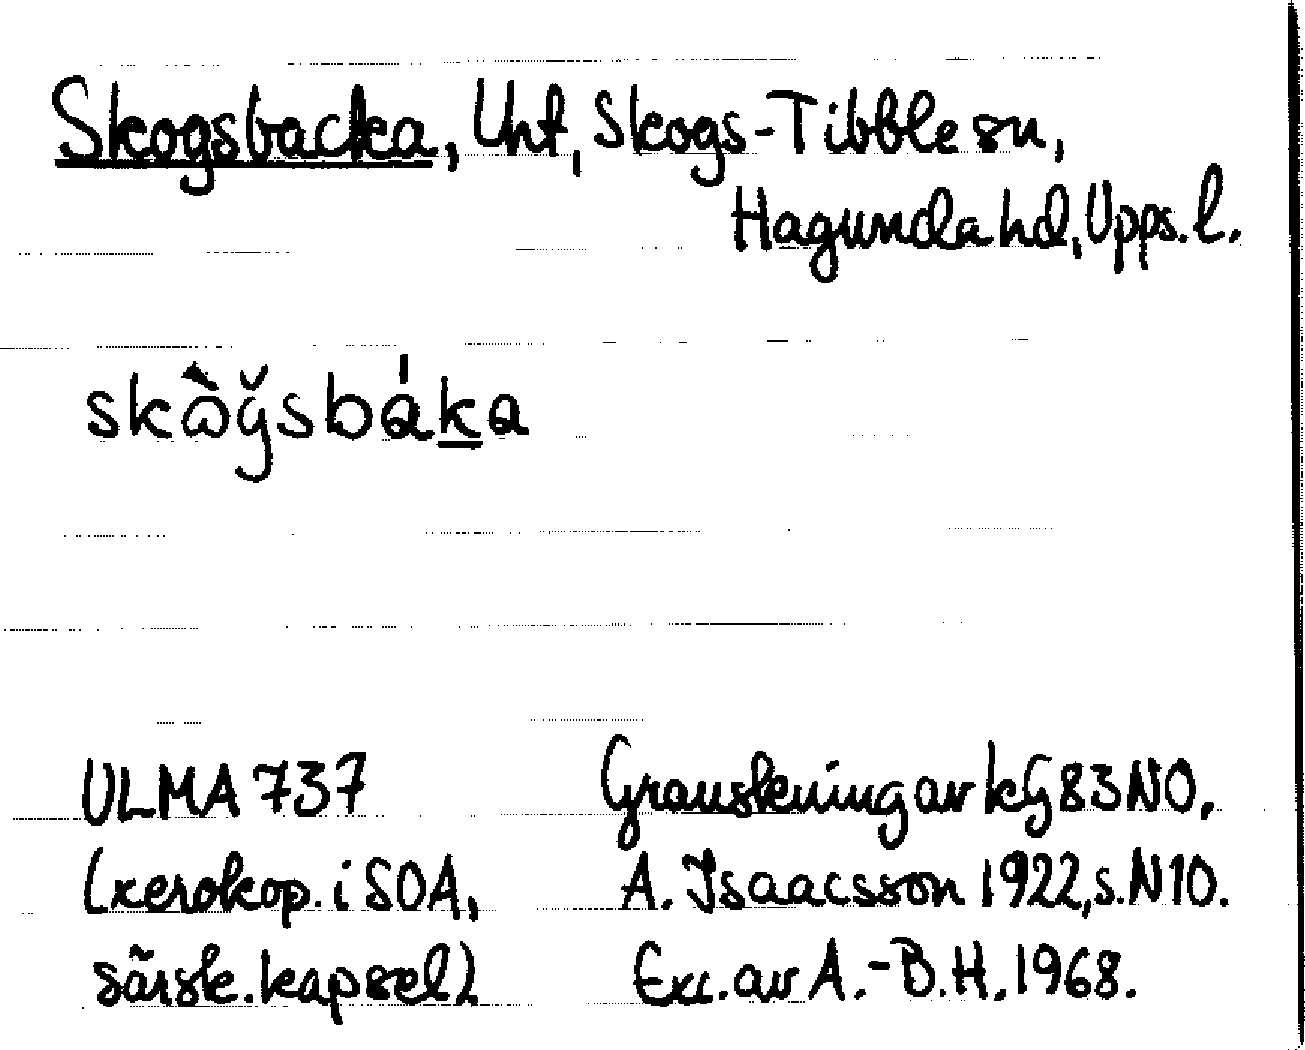 Skogsbacka, Lht, Skogs-Tibble sn,
Hagunda hd, Upps. l.
skὼğsbákа
ULMA 737
(xerokop. i SOA,
särsk. kapsel)
Granskning av kG 83 NO,
A. Isaacsson 1922, s. N10.
Exc. av A.-B. H. 1968.